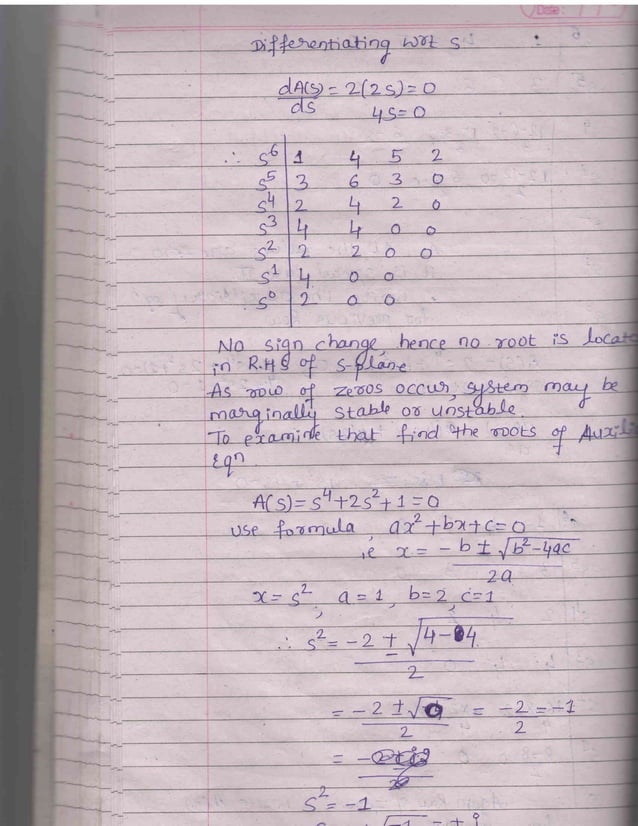 Date:
Differentiating wrt s :
dA(s)/ds = 2(2s) = 0
4s = 0
∴ s⁶ | 1 4 5 2
s⁵ | 3 6 3 0
s⁴ | 2 4 2 0
s³ | 4 4 0 0
s² | 2 2 0 0
s¹ | 4 0 0
s⁰ | 2 0 0
No sign change, hence no root is locate
in R.H.S of s-plane
As row of zeros occur, system may be
marginally stable or unstable.
To examine that find the roots of Auxili
Eqn
A(s) = s⁴ + 2s² + 1 = 0
use formula, ax² + bx + c = 0
ie x = -b ± √(b² - 4ac) / 2a
x = s², a = 1, b = 2, c = 1
∴ s² = -2 ± √(4 - 4) / 2
= -2 ± √0 / 2 = -2/2 = -1
s² = -1